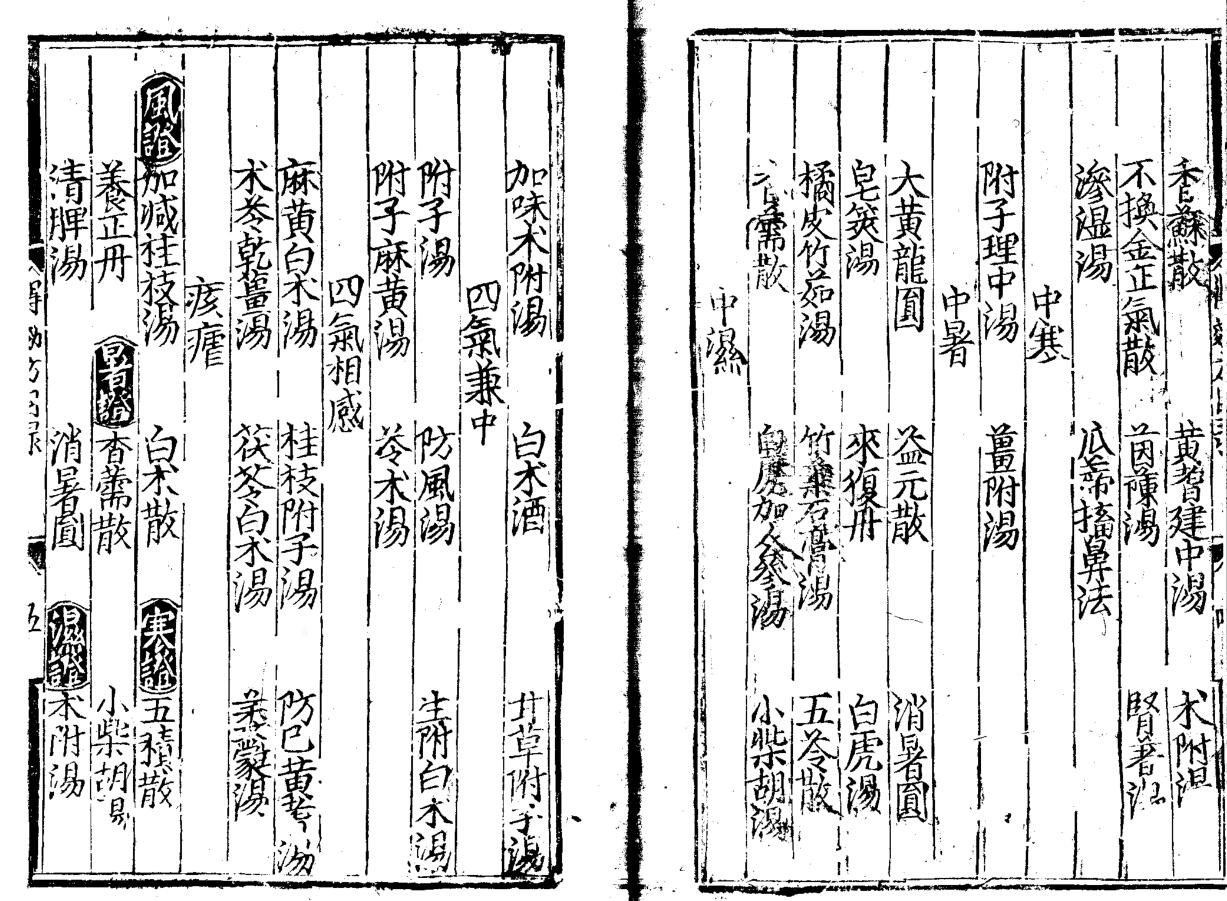 香蘇散 黃耆建中湯 朮附湯
不換金正氣散 茵蔯湯 腎著湯
滲湿湯 瓜蒂搐鼻法
中寒
附子理中湯 薑附湯
中暑
大黃龍圓 益元散 消暑圓
皂莢湯 來復丹 白虎湯
橘皮竹茹湯 竹葉石膏湯 五苓散
香薷散 白虎加人參湯 小柴胡湯
中濕
加味朮附湯 白朮酒 甘草附子湯
四氣兼中
附子湯 防風湯 生附白朮湯
附子麻黃湯 苓朮湯
四氣相感
麻黃白朮湯 桂枝附子湯 防已黃耆湯
朮苓乾薑湯 茯苓白朮湯
痎瘧
風證 加減桂枝湯 白朮散 寒證 五積散
養正丹 暑證 香薷散 小柴胡湯
清脾湯 消暑圓 濕證 朮附湯
五